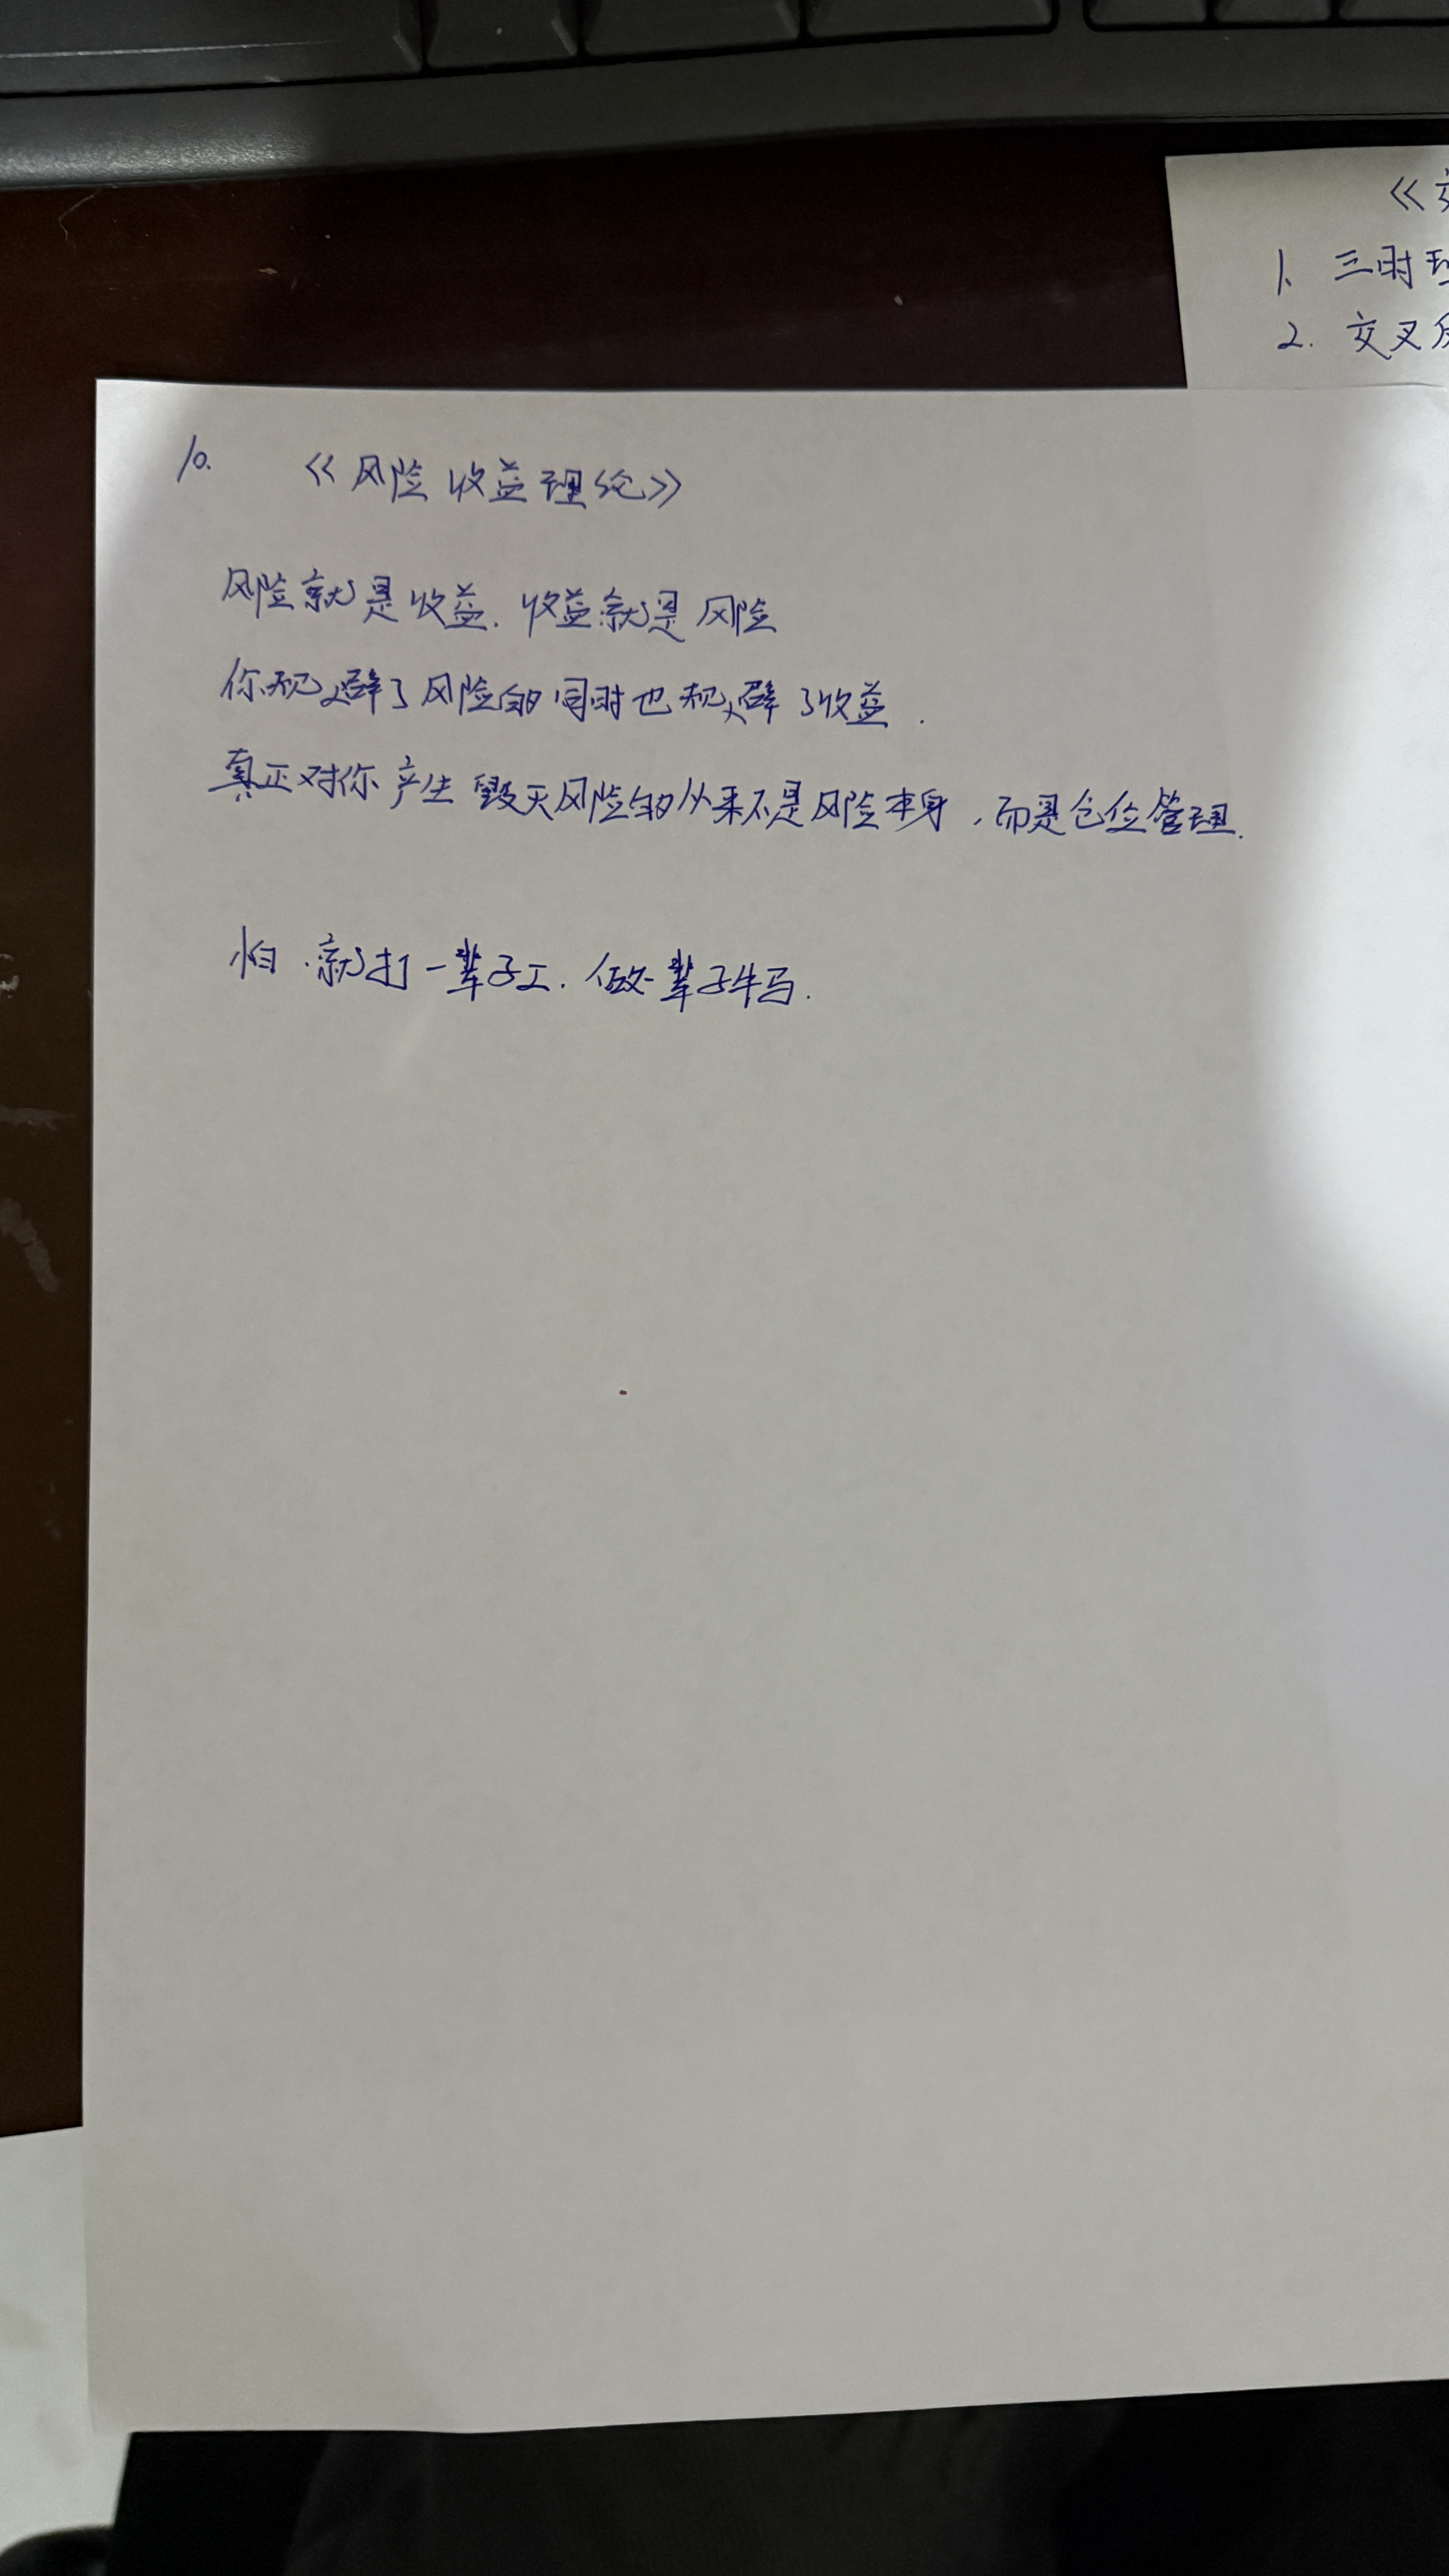 《
1、三时
2. 交叉
10. 《风险收益理论》
风险就是收益. 收益就是风险
你规避了风险的同时也规避了收益.
真正对你产生毁灭风险的从来不是风险本身,而是仓位管理.
怕.就打一辈子工.做一辈子牛马.